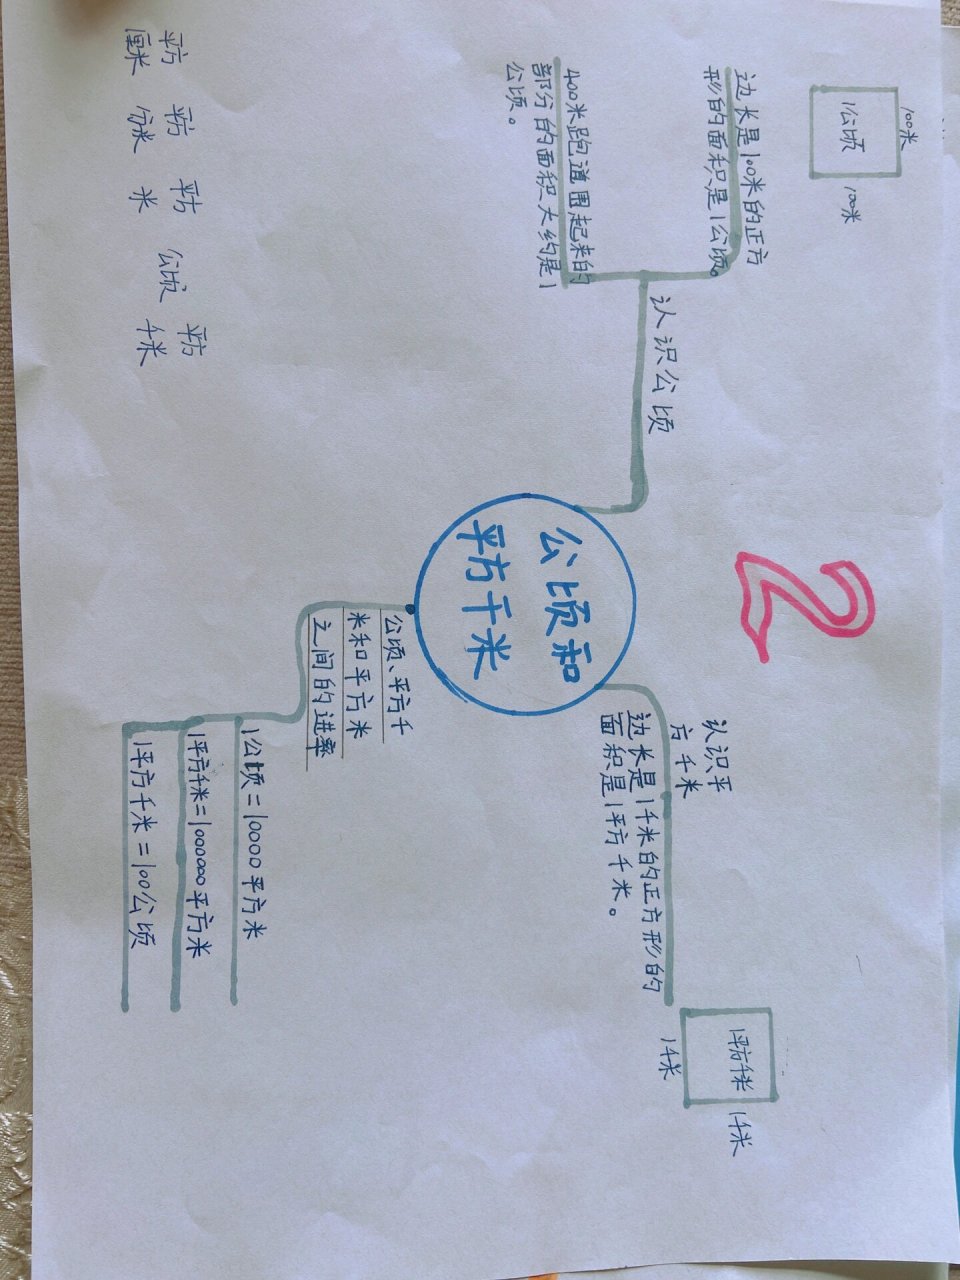 2
公顷和
平方千米
认识公顷
边长是100米的正方
形的面积是1公顷。
400米跑道围起来的
部分的面积大约是1
公顷。
100米
1公顷
100米
认识平
方千米
边长是1千米的正方形的
面积是1平方千米。
1平方千米
1千米
1千米
公顷、平方千
米和平方米
之间的进率
1公顷=10000平方米
1平方千米=1000000平方米
1平方千米=100公顷
平方 平方 平方 公顷 平方
厘米 分米 米 千米